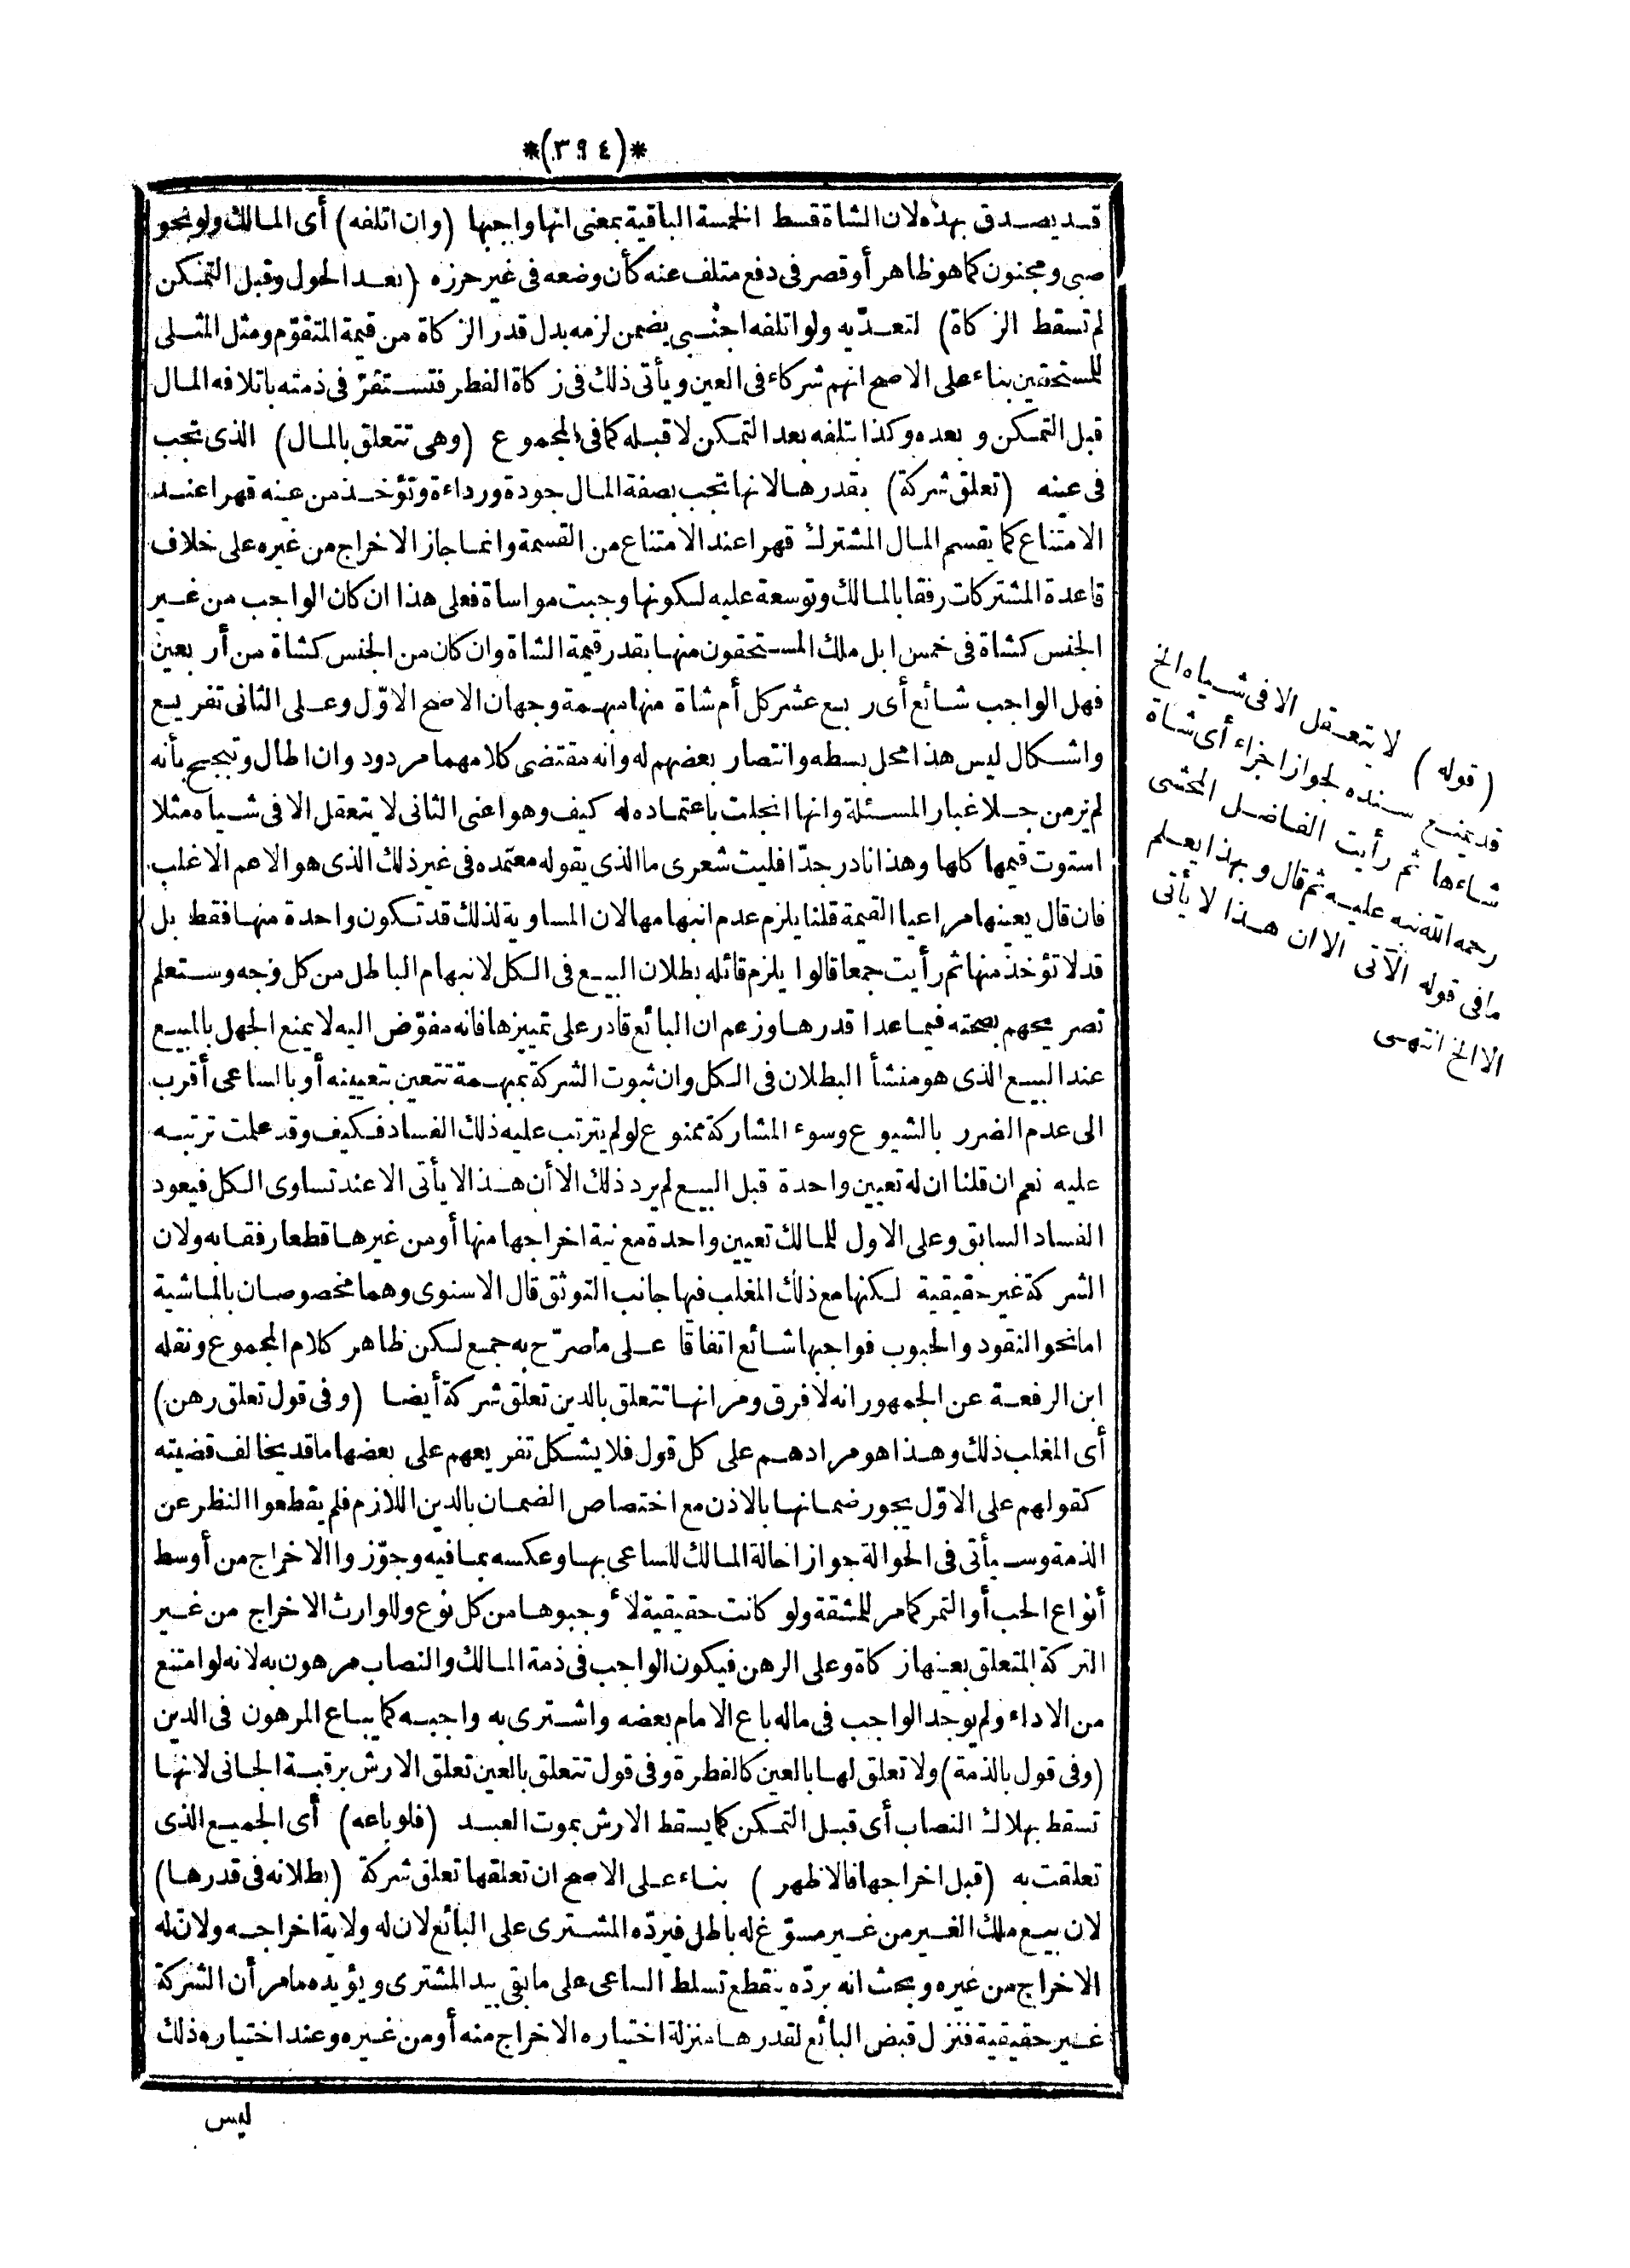 *(٣٩٤)*
قد يصدق بهذه لان الشاة قسط الخمسة الباقية بمعنى انها واجبها (وان اتلفه) أى المالك ولو نحو
صبى ومجنون كما هو ظاهر أو قصر فى دفع متلف عنه كأن وضعه فى غير حرزه (بعد الحول وقبل التمكن
لم تسقط الزكاة) لتعدّيه ولو اتلفه اجنبى يضمن لزمه بدل قدر الزكاة من قيمة المتقوّم ومثل المثلى
للمستحقين بناء على الاصح انهم شركاء فى العين ويأتى ذلك فى زكاة الفطر فتستقرّ فى ذمته باتلافه المال
قبل التمكن وبعده وكذا بتلفه بعد التمكن لا قبله كما فى المجموع (وهى تتعلق بالمال) الذى تجب
فى عينه (تعلق شركة) بقدرها لانها تجب بصفة المال جودة ورداءة وتؤخذ من عينه قهرا عند
الامتناع كما يقسم المال المشترك قهرا عند الامتناع من القسمة وانما جاز الاخراج من غيره على خلاف
قاعدة المشتركات رفقا بالمالك وتوسعة عليه لكونها وجبت مواساة فعلى هذا ان كان الواجب من غير
الجنس كشاة فى خمس ابل ملك المستحقون منها بقدر قيمة الشاة وان كان من الجنس كشاة من أربعين
فهل الواجب شائع أى ربع عشر كل أم شاة منها مبهمة وجهان الاصح الاوّل وعلى الثانى تفريع
واشكال ليس هذا محل بسطه وانتصار بعضهم له وانه مقتضى كلامهما مردود وان اطال وتبجح بأنه
لم ير من جلا غبار المسئلة وانها انجلت باعتماده له كيف وهو اعنى الثانى لا يتعقل الا فى شياه مثلا
استوت قيمها كلها وهذا نادر جدّا فليت شعرى ما الذى يقوله معتمده فى غير ذلك الذى هو الاعم الاغلب
فان قال يعينها مراعيا القيمة قلنا يلزم عدم ابهامها لان المساوية لذلك قد تكون واحدة منها فقط بل
قد لا تؤخذ منها ثم رأيت جمعا قالوا يلزم قائله بطلان البيع فى الكل لابهام الباطل من كل وجه وستعلم
تصريحهم بصحته فيما عدا قدرها وزعم ان البائع قادر على تمييزها فانه مفوّض اليه لا يمنع الجهل بالمبيع
عند البيع الذى هو منشأ البطلان فى الكل وان ثبوت الشركة بمبهمة تتعين بتعيينه أو بالساعى أقرب
الى عدم الضرر بالشيوع وسوء المشاركة ممنوع لو لم يترتب عليه ذلك الفساد فكيف وقد علمت ترتبه
عليه نعم ان قلنا ان له تعيين واحدة قبل البيع لم يرد ذلك الا أن هذا لا يأتى الا عند تساوى الكل فيعود
الفساد السابق وعلى الاول للمالك تعيين واحدة مع نية اخراجها منها أو من غيرها قطعا رفقا به ولان
الشركة غير حقيقية لكنها مع ذلك المغلب فيها جانب التوثق قال الاسنوى وهما مخصوصان بالماشية
اما نحو النقود والحبوب فواجبها شائع اتفاقا على ما صرّح به جمع لكن ظاهر كلام المجموع ونقله
ابن الرفعة عن الجمهور انه لا فرق ومر انها تتعلق بالدين تعلق شركة أيضا (وفى قول تعلق رهن)
أى المغلب ذلك وهذا هو مرادهم على كل قول فلا يشكل تفريعهم على بعضها ما قد يخالف قضيته
كقولهم على الاوّل يجوز ضمانها بالاذن مع اختصاص الضمان بالدين اللازم فلم يقطعوا النظر عن
الذمة وسيأتى فى الحوالة جواز احالة المالك للساعى بها وعكسه بما فيه وجوّزوا الاخراج من أوسط
أنواع الحب أو التمر كما مر للمشقة ولو كانت حقيقية لأوجبوها من كل نوع وللوارث الاخراج من غير
التركة المتعلق بعينها زكاة وعلى الرهن فيكون الواجب فى ذمة المالك والنصاب مرهون به لانه لو امتنع
من الاداء ولم يوجد الواجب فى ماله باع الامام بعضه واشترى به واجبه كما يباع المرهون فى الدين
(وفى قول بالذمة) ولا تعلق لها بالعين كالفطرة وفى قول تتعلق بالعين تعلق الارش برقبة الجانى لانها
تسقط بهلاك النصاب أى قبل التمكن كما يسقط الارش بموت العبد (فلو باعه) أى الجميع الذى
تعلقت به (قبل اخراجها فالاظهر) بناء على الاصح ان تعلقها تعلق شركة (بطلانه فى قدرها)
لان بيع ملك الغير من غير مسوّغ له باطل فيردّه المشترى على البائع لان له ولاية اخراجه ولان له
الاخراج من غيره وبحث انه بردّه ينقطع تسلط الساعى على ما بقى بيد المشترى ويؤيده ما مر أن الشركة
غير حقيقية فنزل قبض البائع لقدرها منزلة اختياره الاخراج منه أو من غيره وعند اختياره ذلك
ليس
(قوله) لا يتعقل الا فى شياه الخ
قد يمنع سنده لجواز اجزاء أى شاة
شاءها ثم رأيت الفاضل المحشى
رحمه الله نبه عليه ثم قال وبهذا يعلم
ما فى قوله الآتى الا ان هذا لا يأتى
الا الخ انتهى